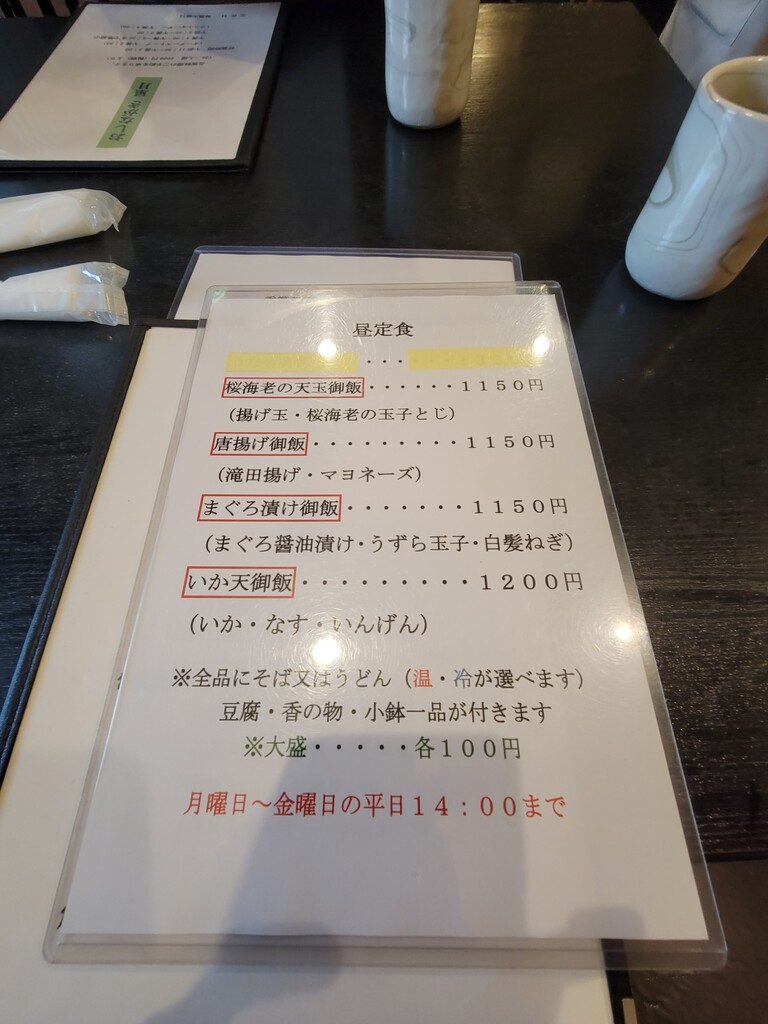 おしながき
昼定食
・・・
桜海老の天玉御飯・・・・・・１１５０円
（揚げ玉・桜海老の玉子とじ）
唐揚げ御飯・・・・・・・・・１１５０円
（滝田揚げ・マヨネーズ）
まぐろ漬け御飯・・・・・・・１１５０円
（まぐろ醤油漬け・うずら玉子・白髪ねぎ）
いか天御飯・・・・・・・・・１２００円
（いか・なす・いんげん）
※全品にそば又はうどん（温・冷が選べます）
豆腐・香の物・小鉢一品が付きます
※大盛・・・・・各１００円
月曜日～金曜日の平日１４：００まで